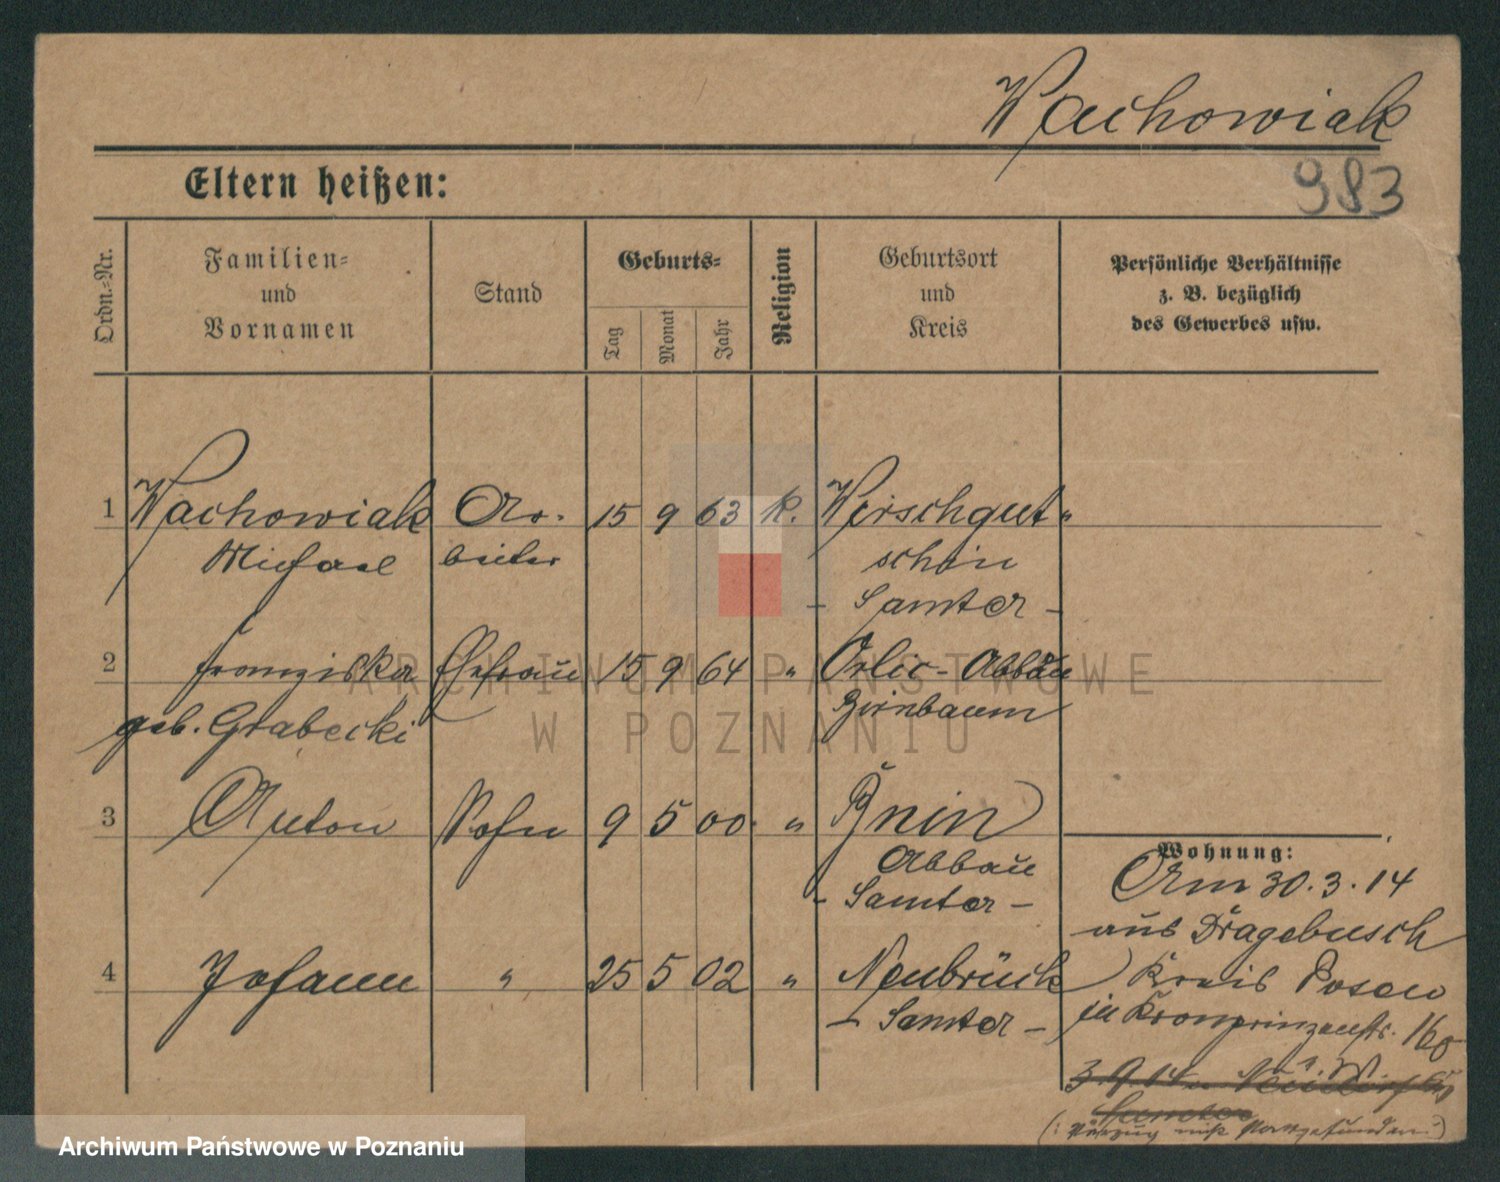 Wachowiak
983
Eltern heißen:
Ordn.-Nr.
Familien-
und
Vornamen
Stand
Geburts-
Tag
Monat
Jahr
Religion
Geburtsort
und
Kreis
Persönliche Verhältnisse
z. B. bezüglich
des Gewerbes usw.
1 Wachowiak Ar- 15 9 63 k. Wirschgut-
Michael beiter schin
- Samter -
2 Franziska Ehefrau 15 9 64 " Orlic-Abbau
geb. Grabecki Birnbaum
3 Anton Sohn 9 5 00 " Bnin
Abbau
- Samter -
4 Johann " 25 5 02 " Neubrück
- Samter -
Wohnung:
Am 30.3.14
aus Dragebusch
Kreis Posen
in Kronprinzenstr. 16
3.9.14 n. Neudorf
Samter
(: Abzug nicht stattgefunden :)
ARCHIWUM PAŃSTWOWE
W POZNANIU
Archiwum Państwowe w Poznaniu